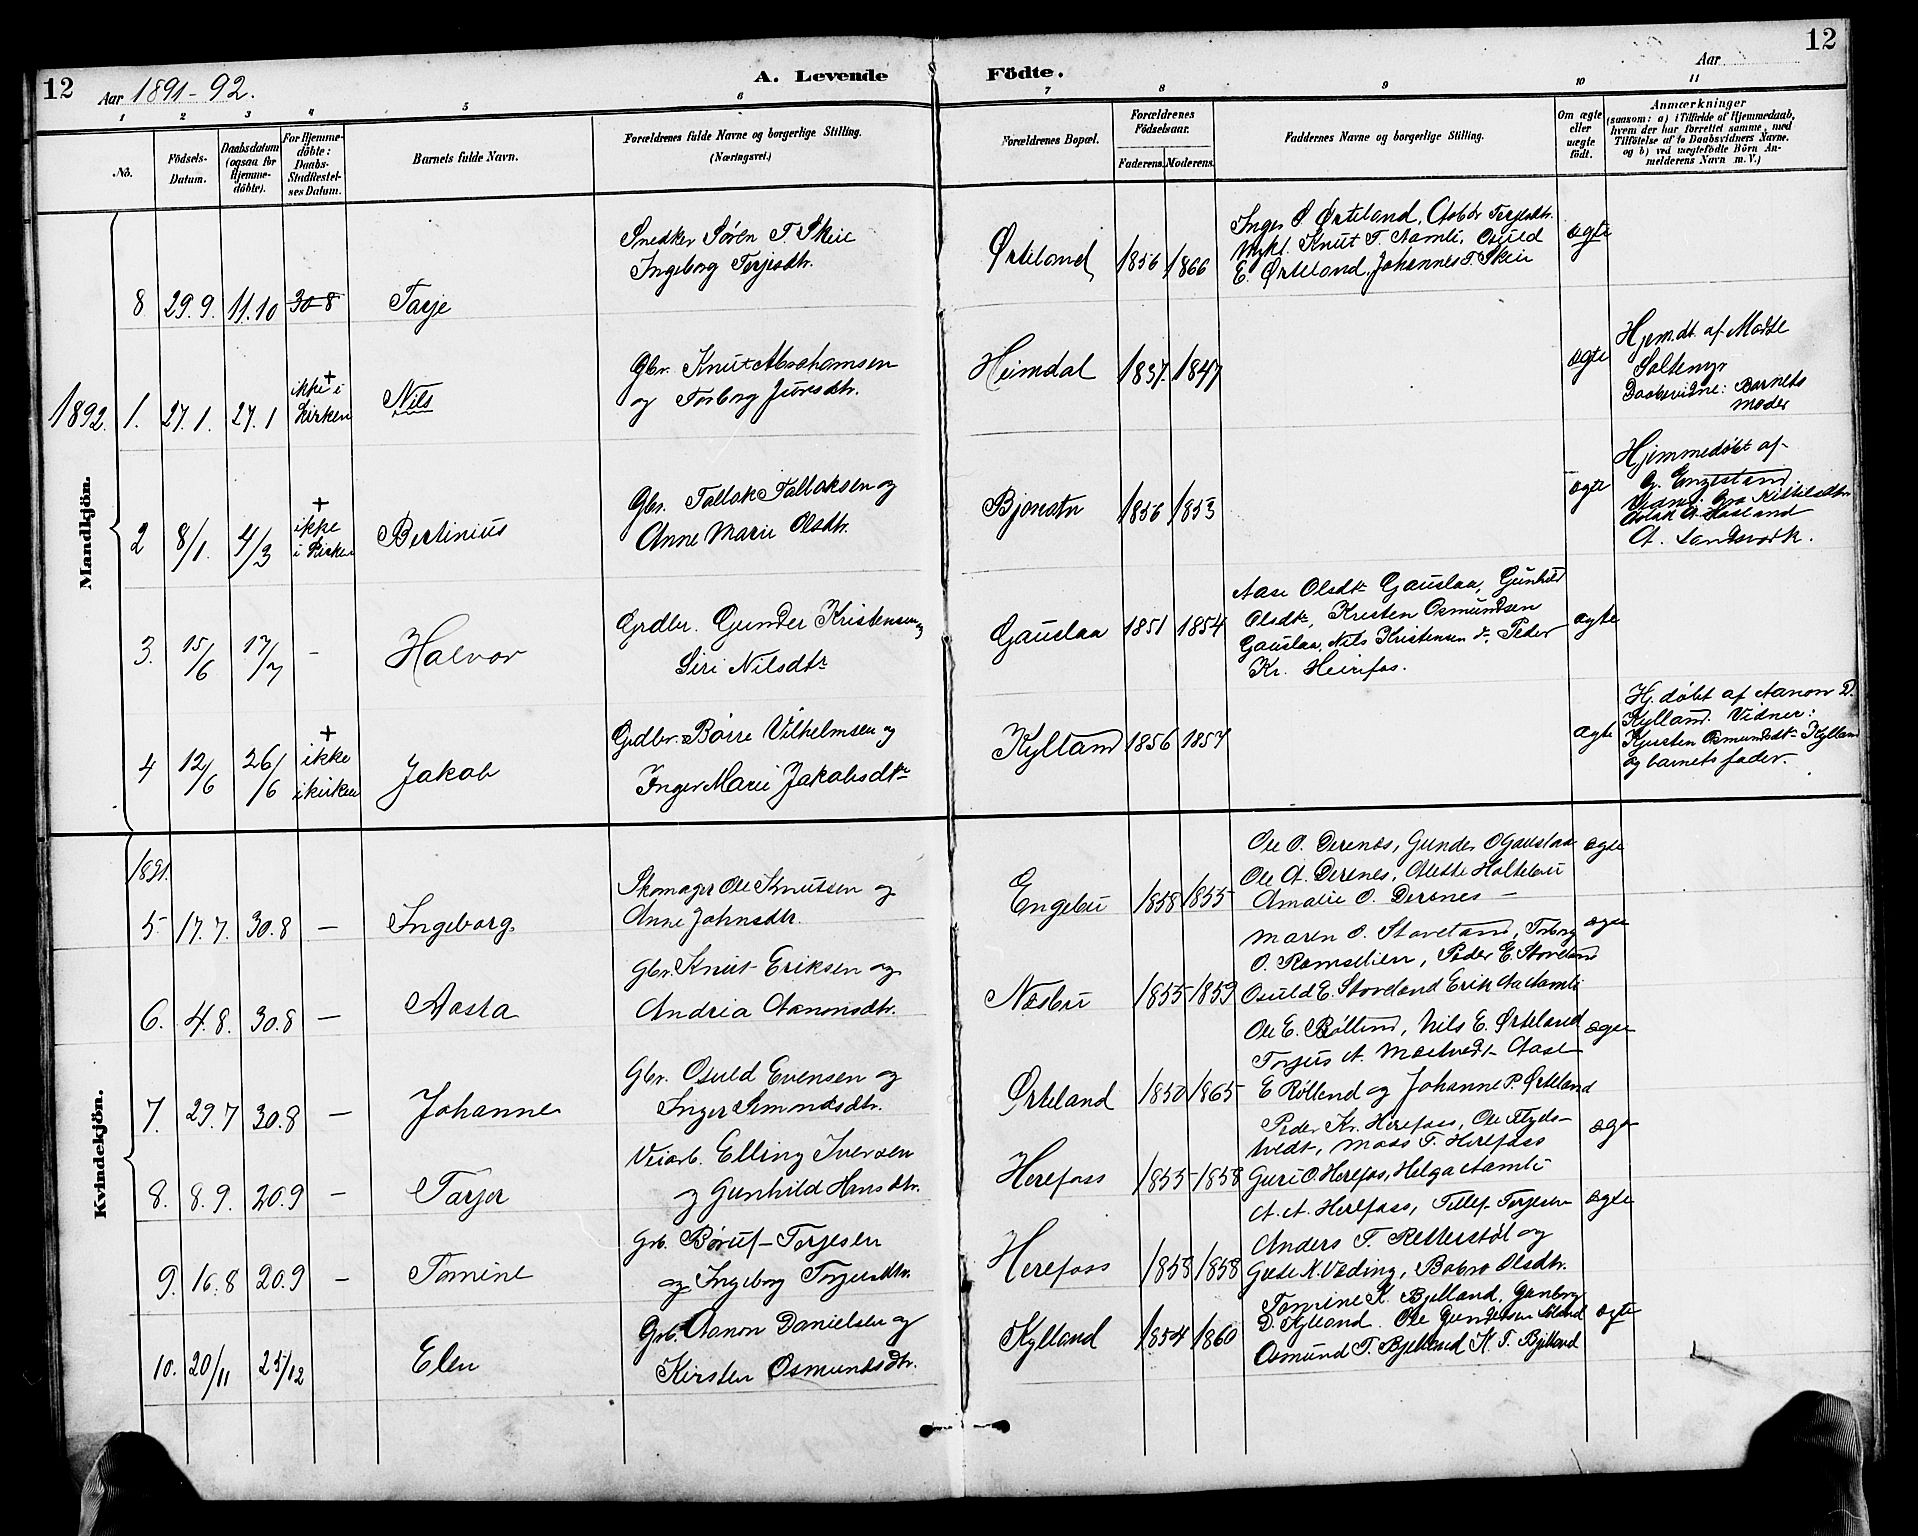 12
Aar 1891-92.
A. Levende
Födte.
Aar
12
1
2
3
4
5
6
7
8
9
10
11
No.
Födsels-
Datum.
Daabsdatum
(ogsaa for
Hjemme-
döbte).
For Hjemme-
döbte:
Daabs-
Stadfæstel-
ses Datum.
Barnets fulde Navn.
Forældrenes fulde Navne og borgerlige Stilling.
(Næringsvei.)
Forældrenes Bopæl.
Forældrenes
Födselsaar.
Faderens.
Moderens.
Faddernes Navne og borgerlige Stilling.
Om ægte
eller
uægte
födt.
Anmærkninger
(saasom: a) i Tilfælde af Hjemmedaab,
hvem der har forrettet samme, med
Tilföielse af to Daabsvidners Navne.
og b) ved uægtefödte Börn An-
melderens Navn m. V.)
Mandkjön.
8 29.9. 11.10 30-8 Tarje
Snedker Søren T. Skeie
Ingeborg Terjesdtr.
Ørteland 1856 1866
Inger S Ørteland, Aabor Terjesdtr.
Mykl. Knut T. Aamli, Osuld
E. Ørteland, Johannes T. Skeie
ægte
1892. 1. 27.1. 27.1 + ikke i
Kirken
Nils
Gbr. Knut Abrahamsen
og Torborg Juresdtr.
Heimdal 1837. 1847
ægte
Hjem.dt. af Madse
Soltemyr
Daabsvidne: Barnets
Moder
2 8/1. 4/3 + ikke
i Kirken
Bertinius
Gbr. Tallak Tallaksen og
Anne Marie Olsdtr.
Bjonstn 1856 1853
ægte
Hjemmedøbt af
G. Engestand
Vidner: Kittelsdtr
Aslak A. Haaland
A. Landsverk.
3. 15/6 17/7 - Halvor
Grdbr. Gunder Kristensen og
Siri Nilsdtr
Gauslaa 1851 1854
Aase Olsdtr Gauslaa, Gunhild
Olsdtr, Kristen Osmundsen
Gauslaa, Nils Kristensen do, Peder
Kr. Heirefos.
ægte
4 12/6 26/6 + ikke
i kirken
Jakob
Grdbr. Børre Vilhelmsen og
Inger Marie Jakobsdtr
Kylland 1856 1857
ægte
Hj. døbt af Aanon D.
Kylland. Vidner:
Kjersten Osmundsdtr Kylland
og barnets fader.
Kvindekjön.
1891.
5 17.7. 30.8 - Ingeborg
Skomager Ole Knutsen og
Anne Johnsdtr.
Engebu 1858 1855
Ole O. Dersnes, Gunder O Gauslaa
Ole A. Dersnes, Alette Holtebu
Amalie O. Dersnes -
ægte
6. 4.8. 30.8 - Aasta
Gbr. Knut Eriksen og
Andrea Aanonsdtr.
Næsbu 1855 1859
Maren O. Stoveland, Torborg
O. Ramselien, Peder E. Stoveland
Osuld E. Stoveland Erik Aa Aamli
ægte
7. 29.7 30.8 - Johanne
Gbr. Osuld Evensen og
Inger Simonsdtr.
Ørteland 1850 1865
Ole E. Røllend, Nils E. Ørteland
Torjus A. Mostvedt Aase
E Røllend og Johanne P. Ørteland
ægte
8. 8.9. 20.9 - Tarjer
Veiarb. Elling Iversen
og Gunhild Hansdtr.
Herefoss 1855 1858
Peder Kr. Herefoss, Ole Flyds-
vedt, Mads T. Herefoss
Guri O. Herefos, Helga Aamli
ægte
9. 16.8 20.9 - Tomine
Grb. Børuf Torjesen
og Ingeborg Torjersdtr.
Herefoss 1858 1858
A. A. Herefoss, Tellef Torjesen
Anders T. Retterstøl og
Gete N. Væding, Babro Olsdtr.
ægte
10. 20/11 25/12 Elen
Grb. Aanon Danielsen og
Kirsten Osmundsdtr.
Kylland 1854 1860
Tomine K. Bjelland, Gunborg
D. Kylland. Ole Gundersen
Osmund T. Bjelland K. T. Bjelland
ægte